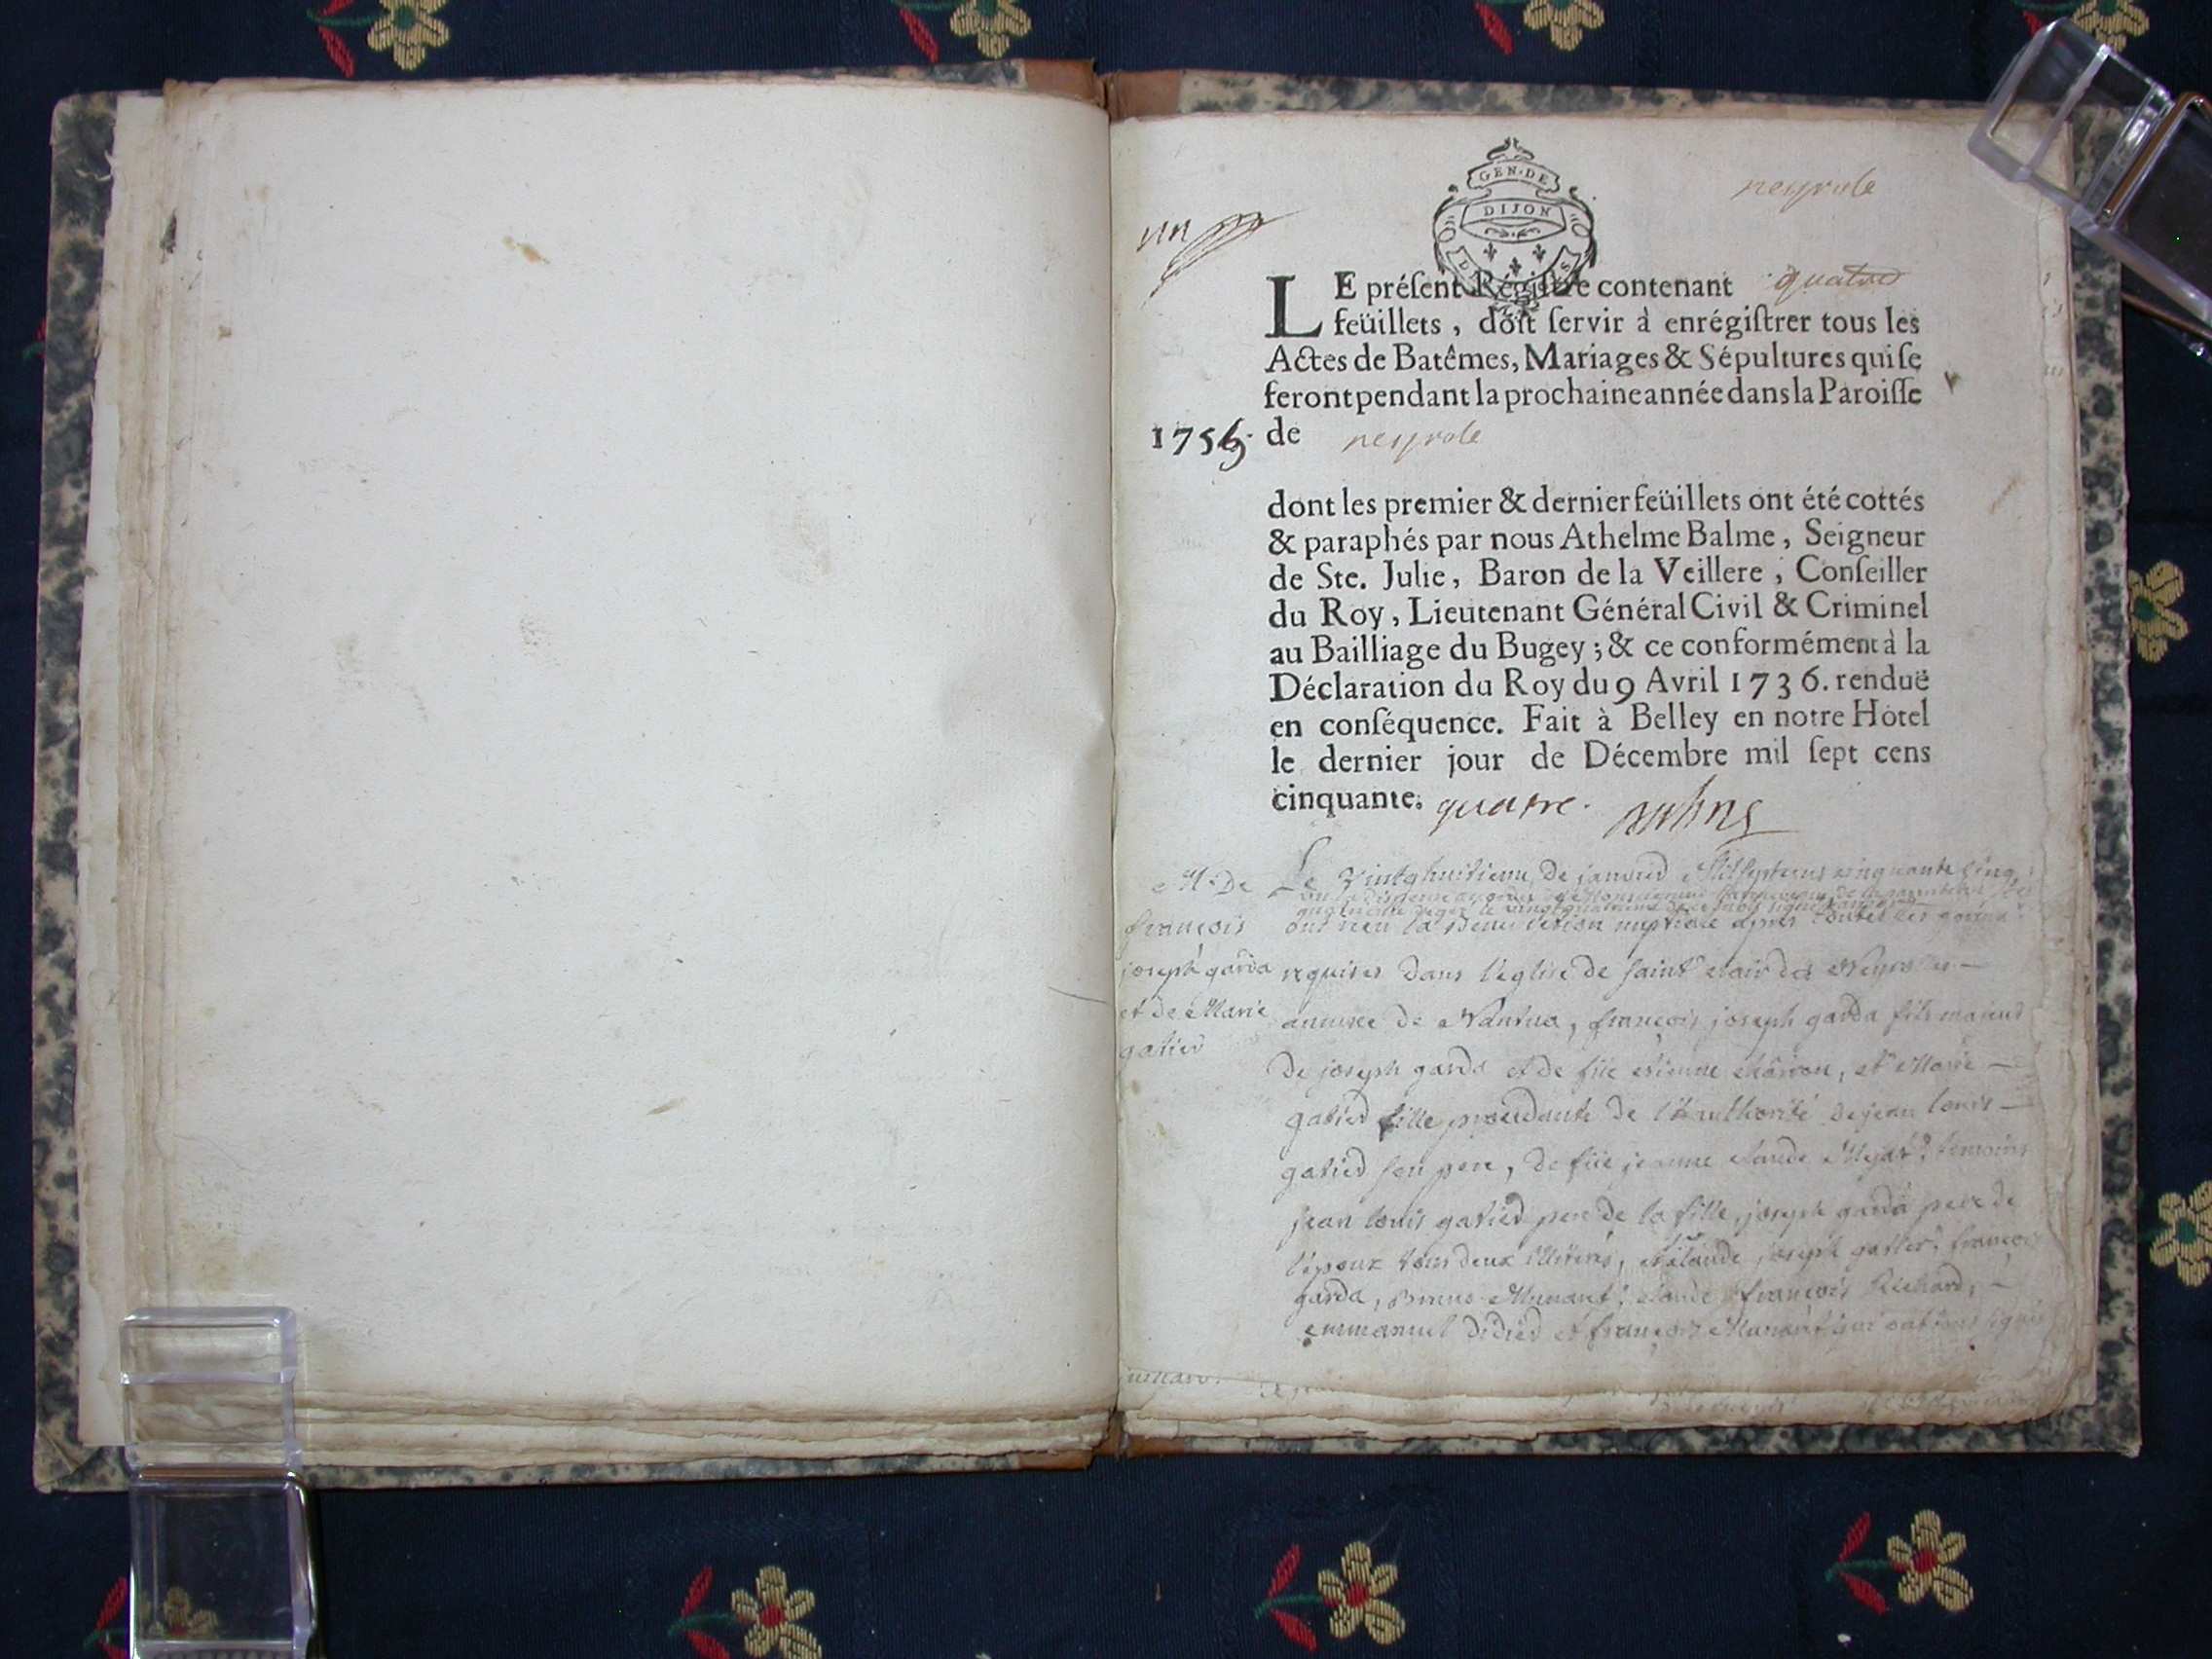 GEN·DE
DIJON
neyrole
un
LE préſent Régiſtre contenant quatre
feüillets, doit ſervir à enrégiſtrer tous les
Actes de Batêmes, Mariages & Sépultures qui ſe
feront pendant la prochaine année dans la Paroiſſe
1755. de neyrole
dont les premier & dernier feüillets ont été cottés
& paraphés par nous Athelme Balme, Seigneur
de Ste. Julie, Baron de la Veillere, Conſeiller
du Roy, Lieutenant Général Civil & Criminel
au Bailliage du Bugey; & ce conformément à la
Déclaration du Roy du 9 Avril 1736. renduë
en conſéquence. Fait à Belley en notre Hôtel
le dernier jour de Décembre mil ſept cens
cinquante. quatre.
M. De
françois
joseph garda
et de Marie
gatier
Le vinthuitieme de janvier Mil septcens cinquante cinq
ont reçu la Benediction nuptiale après toutes les
requises dans l'eglise de saint clair des Neyrolles
annexe de Nantua, françois joseph garda fils majeur
De joseph garda et de füe etienne, et Marie
gatier fille de l'authorité de jean louis
gatier son pere, de füe jeanne claude temoins
jean louis gatier pere de la fille, joseph garda pere de
l'epoux tous deux, claude joseph gatier, françois
garda, claude françois Richard,
emmanuel didier et françois qui ont signés